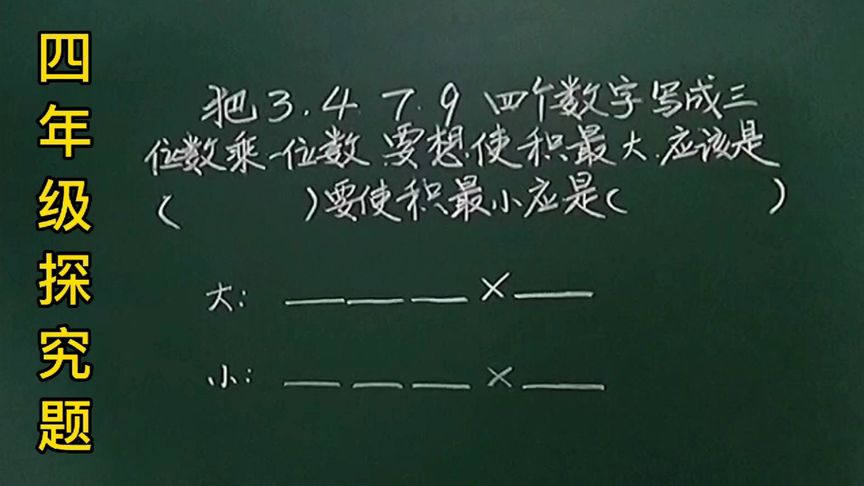 四年级探究题
把3.4.7.9四个数字写成三
位数乘一位数要想使积最大.应该是
(        )要使积最小应是(        )
大: ___ ___ ___ × ___
小: ___ ___ ___ × ___